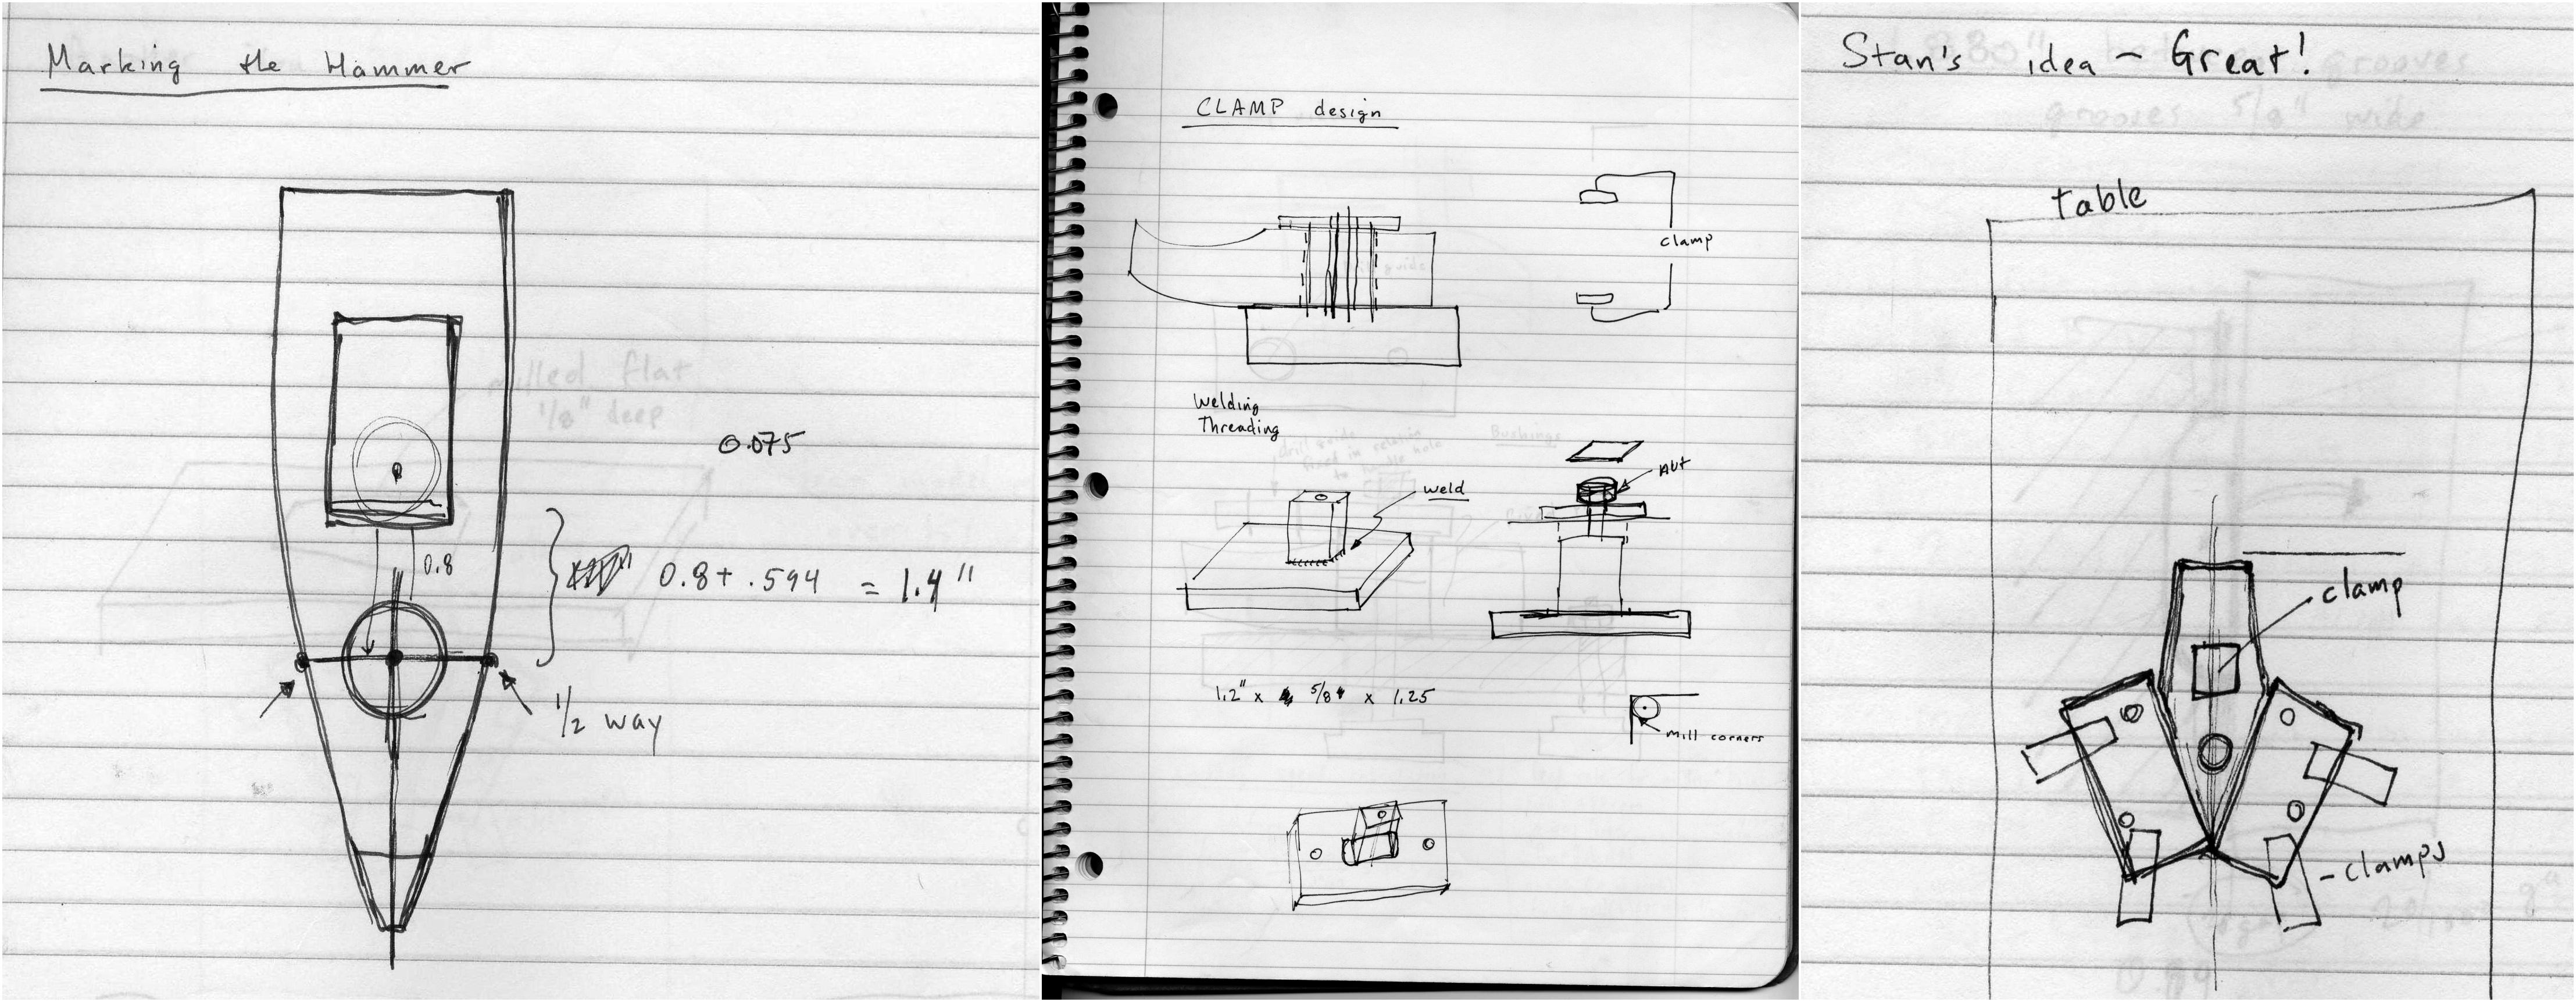 Marking the Hammer
0.075
0.8
0.8 + .594 = 1.4"
1/2 way
CLAMP design
clamp
Welding
Threading
Nut
weld
1.2" x 5/8" x 1.25
mill corners
Stan's idea – Great!
table
clamp
– clamps
milled flat
1/8" deep
Bushings
grooves
grooves 5/8" wide